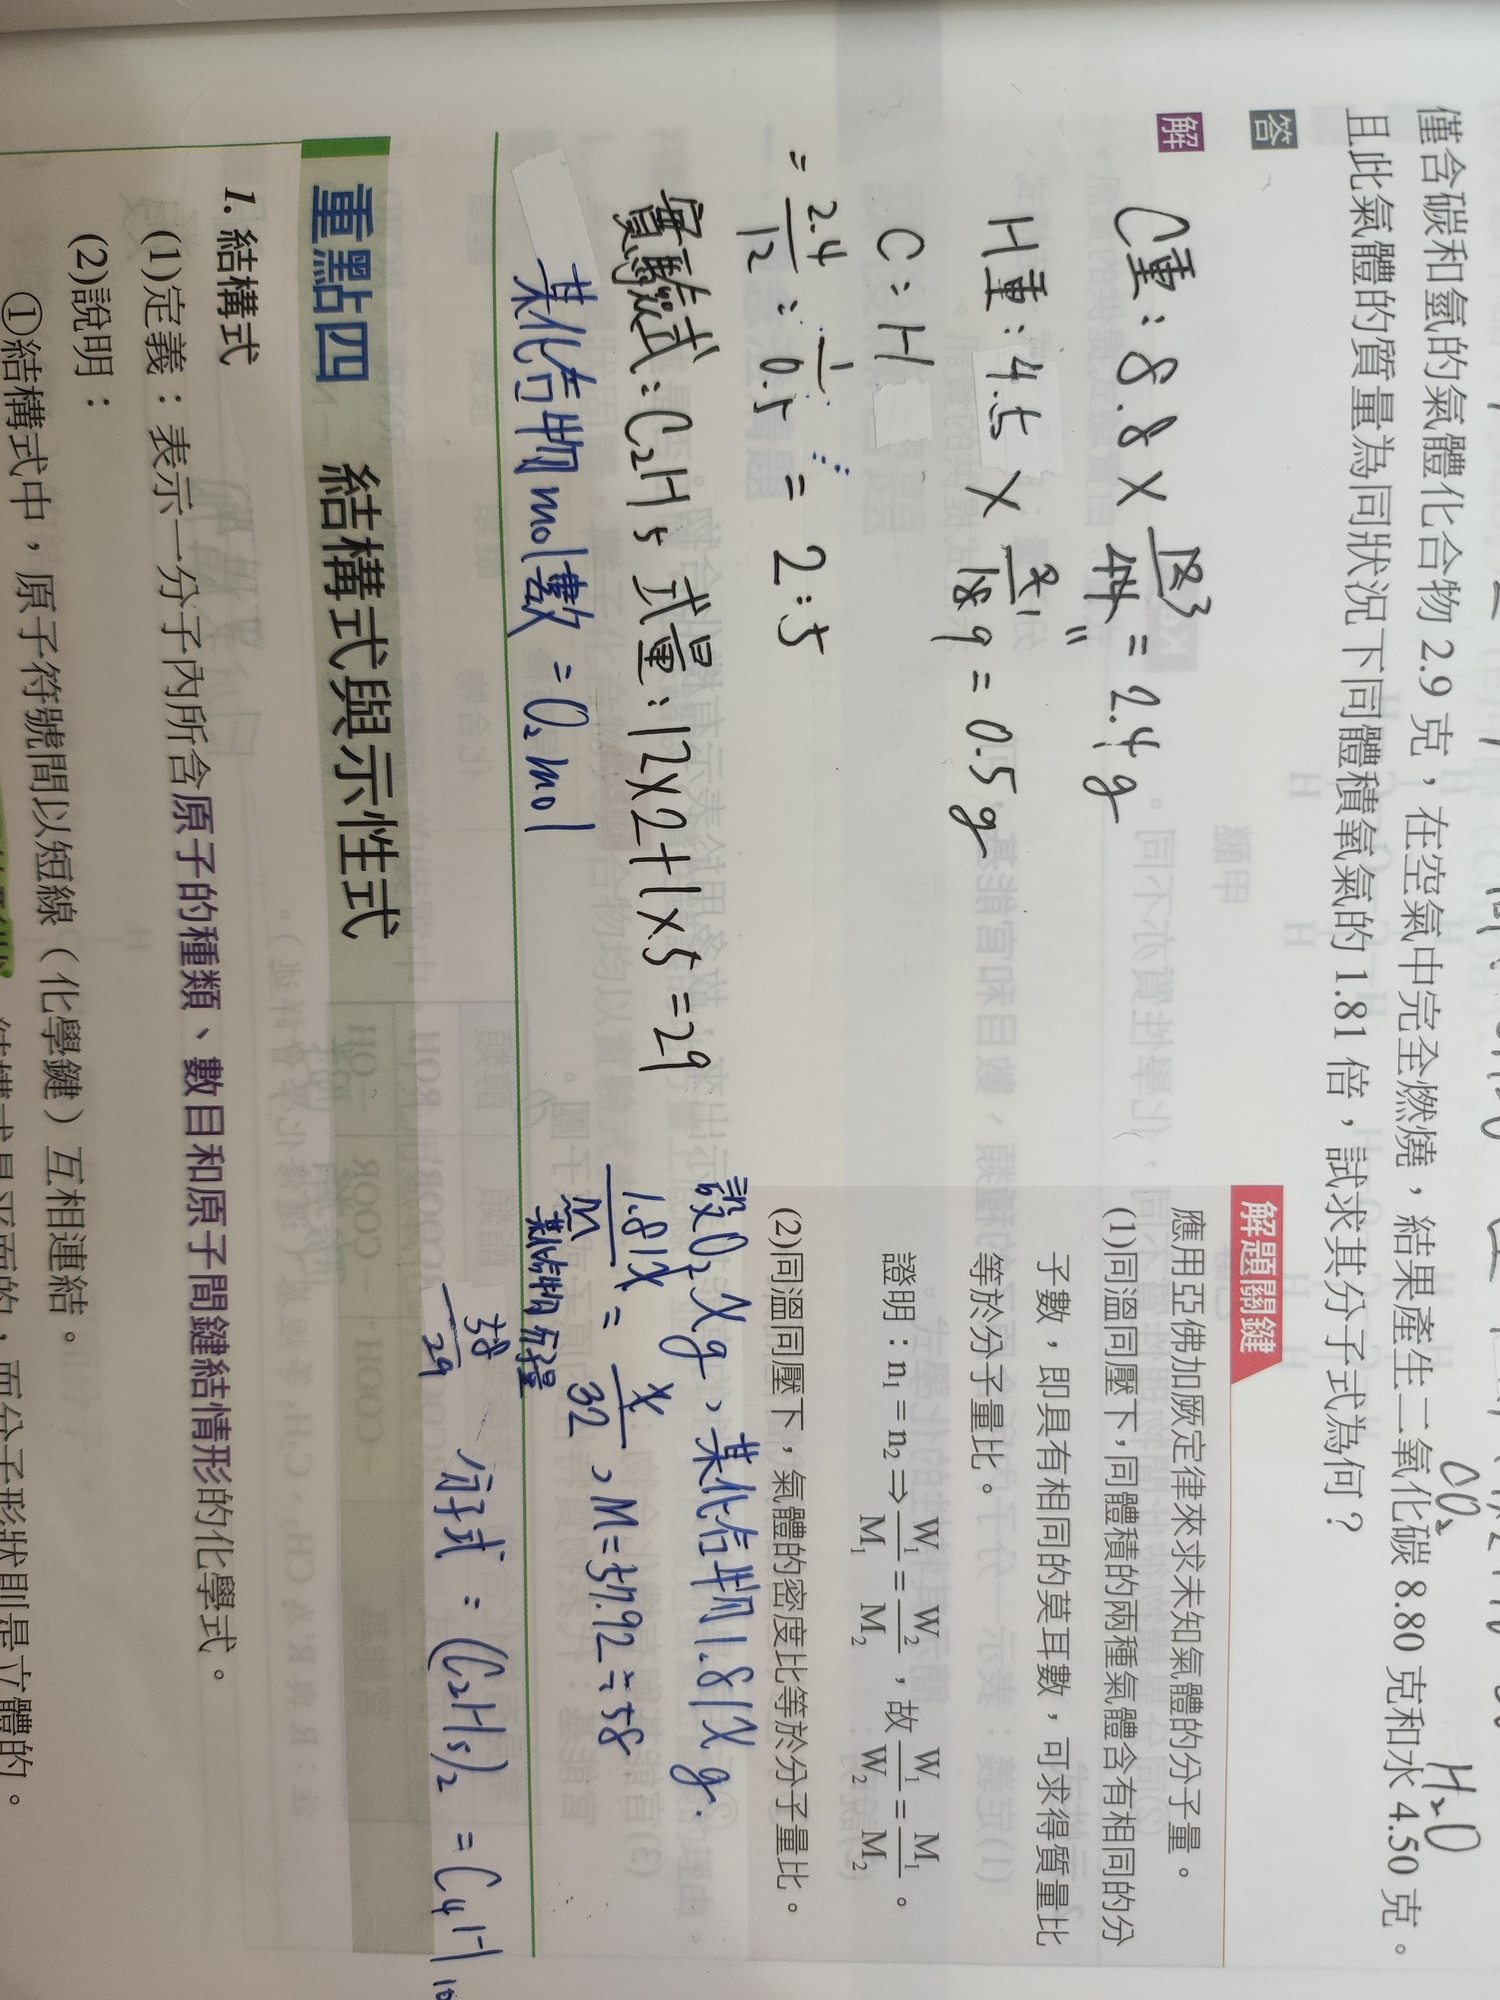 僅含碳和氫的氣體化合物 2.9 克，在空氣中完全燃燒，結果產生二氧化碳 8.80 克和水 4.50 克。
CO₂ H₂O
且此氣體的質量為同狀況下同體積氧氣的 1.81 倍，試求其分子式為何？
答
解
C重：8.8 × 12/44 = 2.4 g
H重：4.5 × 2/18 = 0.5 g
C：H
= 2.4/12 : 0.5/1 = 2:5
實驗式：C₂H₅ 式量：12×2+1×5=29
某化合物mol數 = O₂ mol
解題關鍵
應用亞佛加厥定律來求未知氣體的分子量。
(1)同溫同壓下，同體積的兩種氣體含有相同的分
子數，即具有相同的莫耳數，可求得質量比
等於分子量比。
證明：n₁ = n₂ ⇒ W₁/M₁ = W₂/M₂，故 W₁/W₂ = M₁/M₂。
(2)同溫同壓下，氣體的密度比等於分子量比。
設O₂ X g，某化合物1.81X g.
1.81X/M = X/32，M=57.92≒58
某化合物分子量
58/29 分子式：(C₂H₅)₂ = C₄H₁₀
重點四 結構式與示性式
1. 結構式
(1)定義：表示一分子內所含原子的種類、數目和原子間鍵結情形的化學式。
(2)說明：
①結構式中，原子符號間以短線（化學鍵）互相連結。
結構式是平面的，而分子形狀則是立體的。